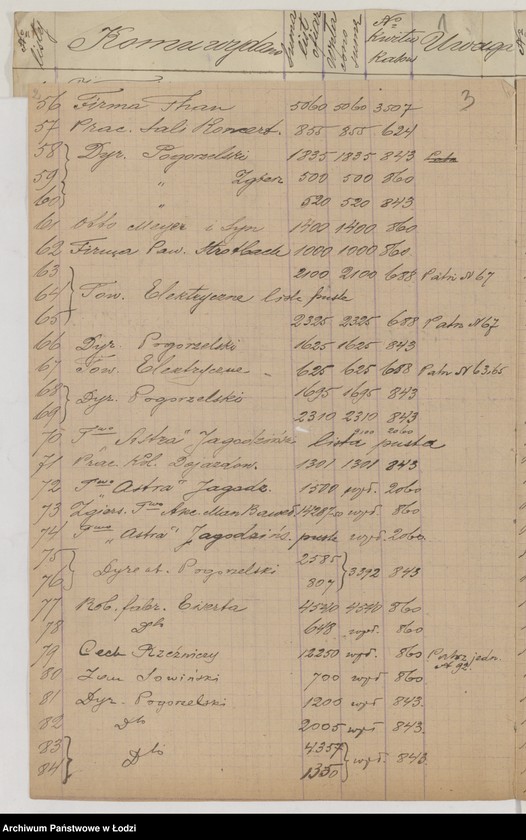 № listy Komu wydano Suma list ofiar wpłacono sumę № Kwitu Uwaga
3
56 Firma Than 5060 5060 3507
57 Prac. Sali Koncert. 855 855 624
58 Dyr. Pogorzelski 1835 1835 843
59 " Zgierz 500 500 860
60 " 520 520 843
61 Otto Mayer i Syn 1400 1400 860
62 Firma Paw. 1000 1000 860
63 2100 2100 688 Patrz N 67
64 Tow. Elektryczne lista pusta
65 2325 2325 688 Patrz N 67
66 Dyr. Pogorzelski 1625 1625 843
67 Tow. Elektryczne 625 625 688 Patrz N 63.65
68 Dyr. Pogorzelski 1695 1695 843
69 2310 2310 843
70 Two "Astra" Jagodzińs lista pusta
71 Prac. Kol. Dojazdow. 1301 1301 843
72 Two "Astra" Jagodz. 1500 wpł. 2060
73 Zgiers. Two Akc. Man. wpł. 860
74 Two "Astra" Jagodzińs. pusta wpł. 2060
75 2585
76 Dyrekt. Pogorzelski 807 3392 843
77 Rob. fabr. Eizerta 4540 4540 860
78 Dto 648 wpł. 860
79 Cech Rzeźniczy 12250 wpł. 860 Patrz jedn. N 92
80 Sowiński 700 wpł 860
81 Dyr. Pogorzelski 1200 wpł 843.
82 Dto 2005 wpł 843.
83 4357
84 Dto 1350 wpł. 843.
Archiwum Państwowe w Łodzi